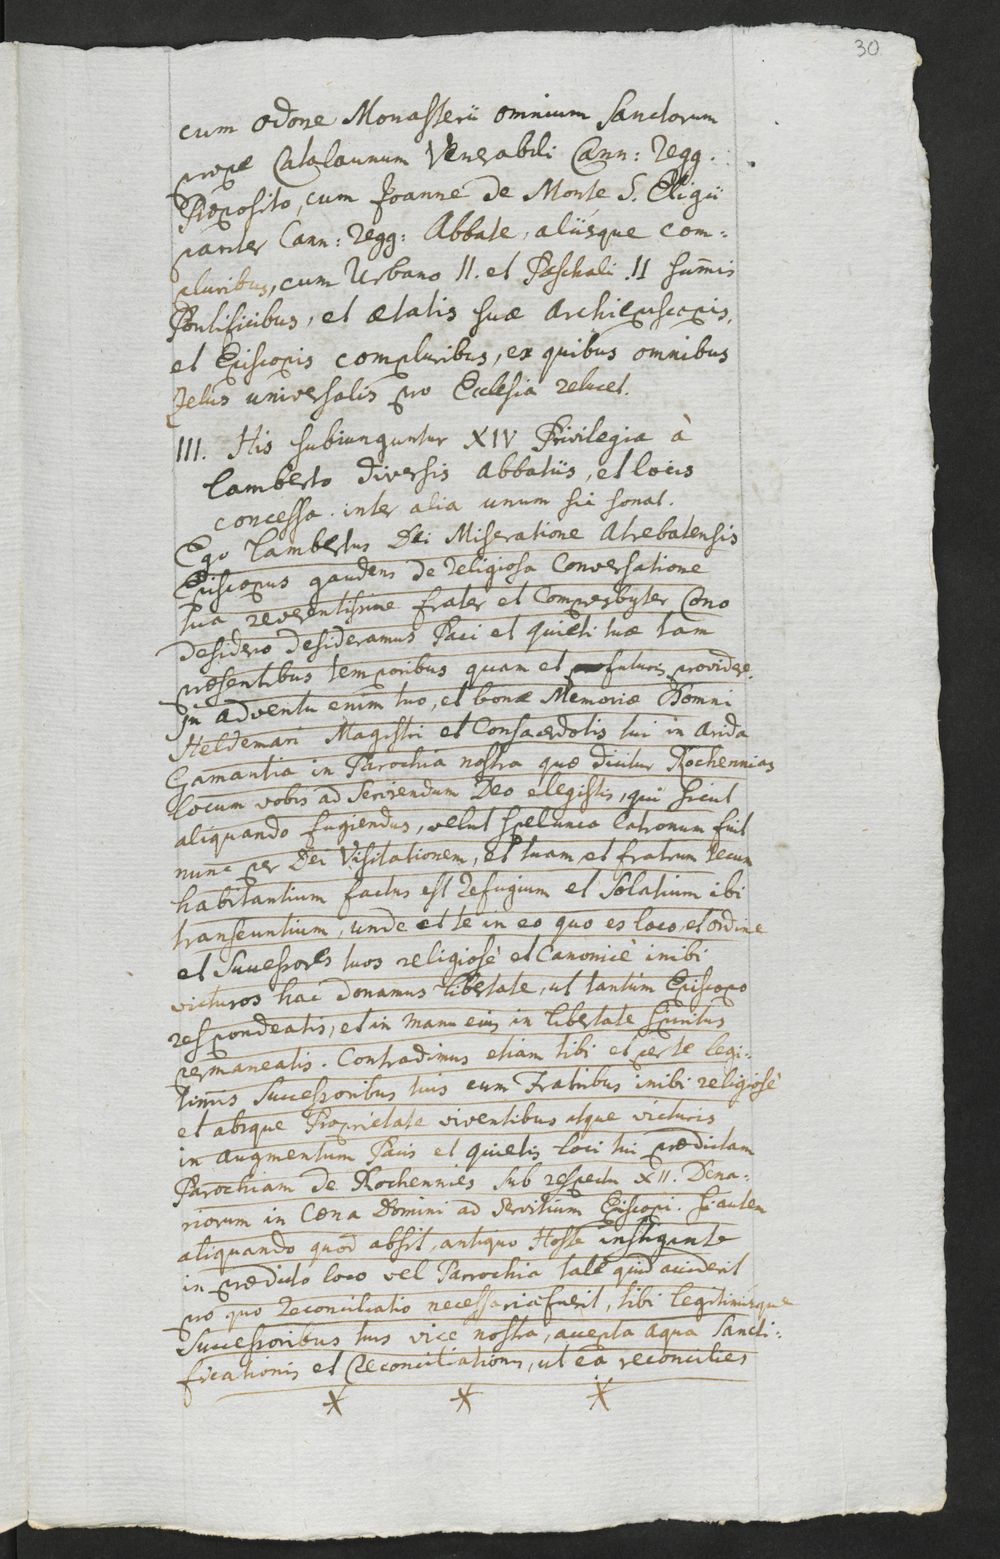 30
cum Odone Monasterii omnium Sanctorum
prope Catalaunum Venerabili Cann: Regg.
Præposito, cum Joanne de Monte S. Eligii
pariter Cann: Regg: Abbate, aliisque com=
pluribus, cum Urbano II. et Paschali II sum̄is
Pontificibus, et ætatis suæ Archiepiscopis,
et Episcopis compluribus, ex quibus omnibus
Zelus universalis pro Ecclesia relucet.
III. His subiunguntur XIV Privilegia à
Lamberto diversis Abbatiis, et locis
concessa. inter alia unum sic sonat.
Ego Lambertus Dei Miseratione Atrebatensis
Episcopus gaudens de religiosa Conversatione
tua reverentissime frater et Compresbyter Cono
desiderio desideramus Paci et quieti tuæ tam
præsentibus temporibus quam et futuris providere.
In adventu enim tuo, et bonæ Memoriæ Domni
Heldemari Magistri et Consacerdotis tui in Arida
Gamantia in Parochia nostra quæ dicitur Rochennias
locum vobis ad Serviendum Deo elegistis, qui sicut
aliquando fugiendus, velut spelunca latronum fuit
nunc per Dei Visitationem, et tuam et fratrum tecum
habitantium factus est refugium et Solatium ibi
transeuntium, unde et te in eo quo es loco, et ordine
et Successores tuos religiosè et Canonicè inibi
victuros hac donamus libertate, ut tantùm Episcopo
respondeatis, et in manu eius in libertate Spiritus
permaneatis. Contradimus etiam tibi et per te legi=
timis Successoribus tuis cum Fratribus inibi religiosè
et absque Proprietate viventibus atque victuris
in augmentum Pacis et quietis loci tui prædictam
Parochiam de Rochennies sub respectu XII. Dena=
riorum in Cœna Domini ad servitium Episcopi. Si autem
aliquando quod absit, antiquo Hoste instigante
in prædicto loco vel Parrochia tale quid acciderit
pro quo reconciliatio necessaria fuerit, tibi legitimisque
Successoribus tuis vice nostra, accepta aqua Sancti=
ficationis et Reconciliationis, ut ea reconcilies
* * *